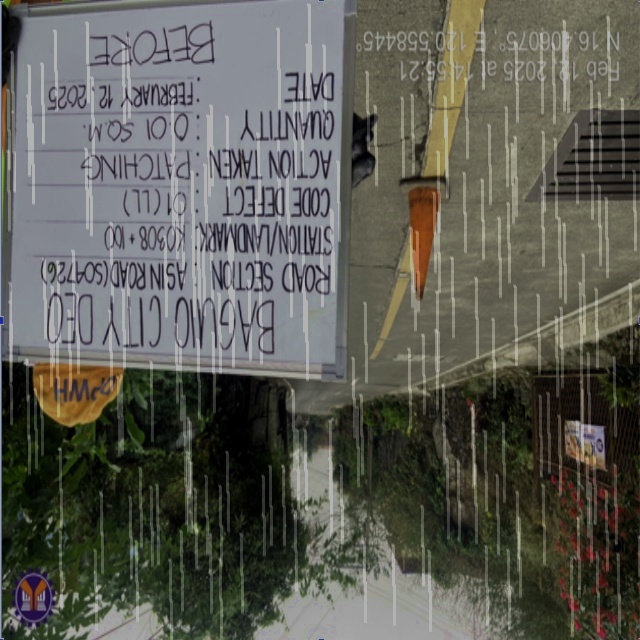 BAGUIO CITY DEO
ROAD SECTION : ASIN ROAD
STATION/LANDMARK: K0308 +
CODE DEFECT : 01 (LL)
ACTION TAKEN : PATCHING
QUANTITY : 0.01 SQ.M.
DATE : FEBRUARY 12, 2025
BEFORE
DPWH
Feb 12, 2025 at 14:55:21
N E 120.558445°